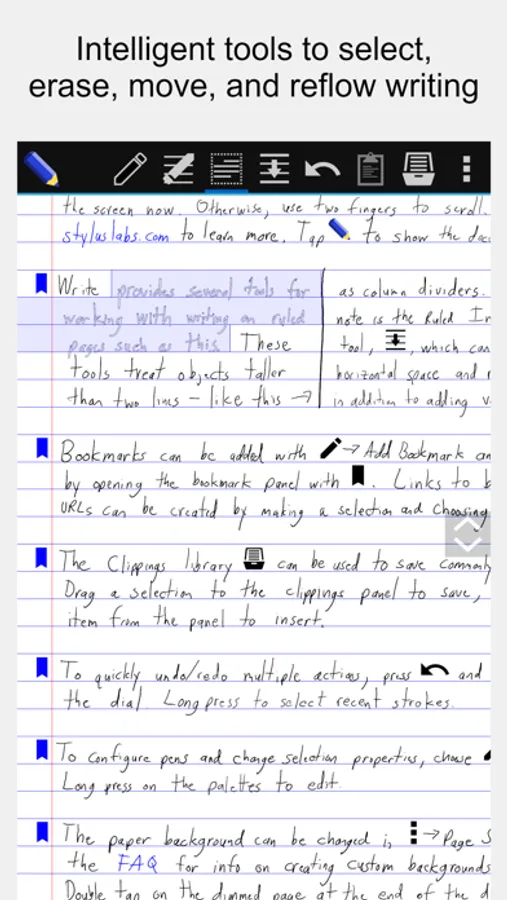 Intelligent tools to select,
erase, move, and reflow writing
the screen now. Otherwise, use two fingers to scroll.
styluslabs.com to learn more. Tap to show the doc
Write provides several tools for
working with writing on ruled
pages such as this. These
tools treat objects taller
than two lines – like this →
as column dividers.
note is the Ruled In
tool, , which can
horizontal space and
in addition to adding v
Bookmarks can be added with → Add Bookmark an
by opening the bookmark panel with . Links to b
URLs can be created by making a selection and choosing
The Clippings library can be used to save commonly
Drag a selection to the clippings panel to save,
item from the panel to insert.
To quickly undo/redo multiple actions, press and
the dial. Long press to select recent strokes.
To configure pens and change selection properties, choose
Long press on the palettes to edit.
The paper background can be changed in → Page S
the FAQ for info on creating custom backgrounds
Double tap on the dimmed page at the end of the d